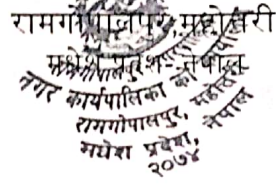 रामगोपालपुर, महोत्तरी
मधेश प्रदेश, नेपाल
नगर कार्यपालिका को
रामगोपालपुर, महोत्तरी
मधेश प्रदेश, नेपाल
२०७४